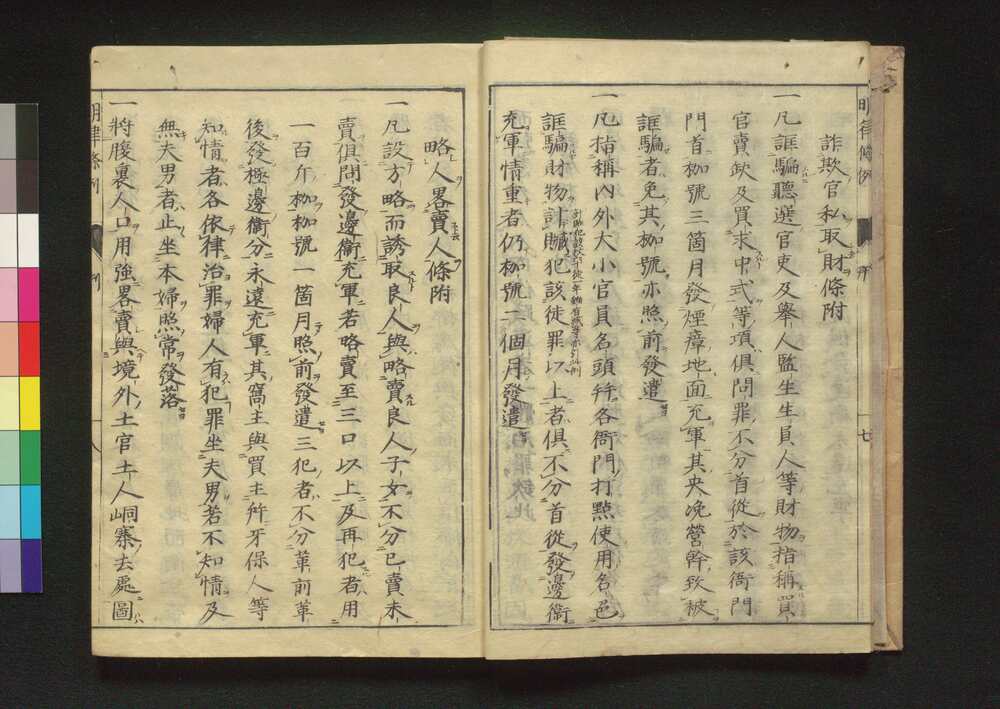 明律條例
七
詐欺官私取財條附
一凡誆騙聽選官吏及舉人監生生員人等財物指稱買
官賣缺及買求中式等項俱問罪不分首從於該衙門
門首枷號三箇月發煙瘴地面充軍其央浼營幹致被
誆騙者免其枷號亦照前發遣
一凡指稱內外大小官員名頭并各衙門打點使用名色
誆騙財物計贓犯該徒罪以上者俱不分首從發邊衛
充軍情重者仍枷號二個月發遣
略人畧賣人條附
一凡設方略而誘取良人與略賣良人子女不分已賣未
賣俱問發邊衛充軍若略賣至三口以上及再犯者用
一百斤枷枷號一箇月照前發遣三犯者不分革前革
後發極邊衛分永遠充軍其窩主與買主并牙保人等
知情者各依律治罪婦人有犯罪坐夫男若不知情及
無夫男者止坐本婦照常發落
一將腹裏人口用強畧賣與境外土官土人峒寨去處圖
明律條例
八